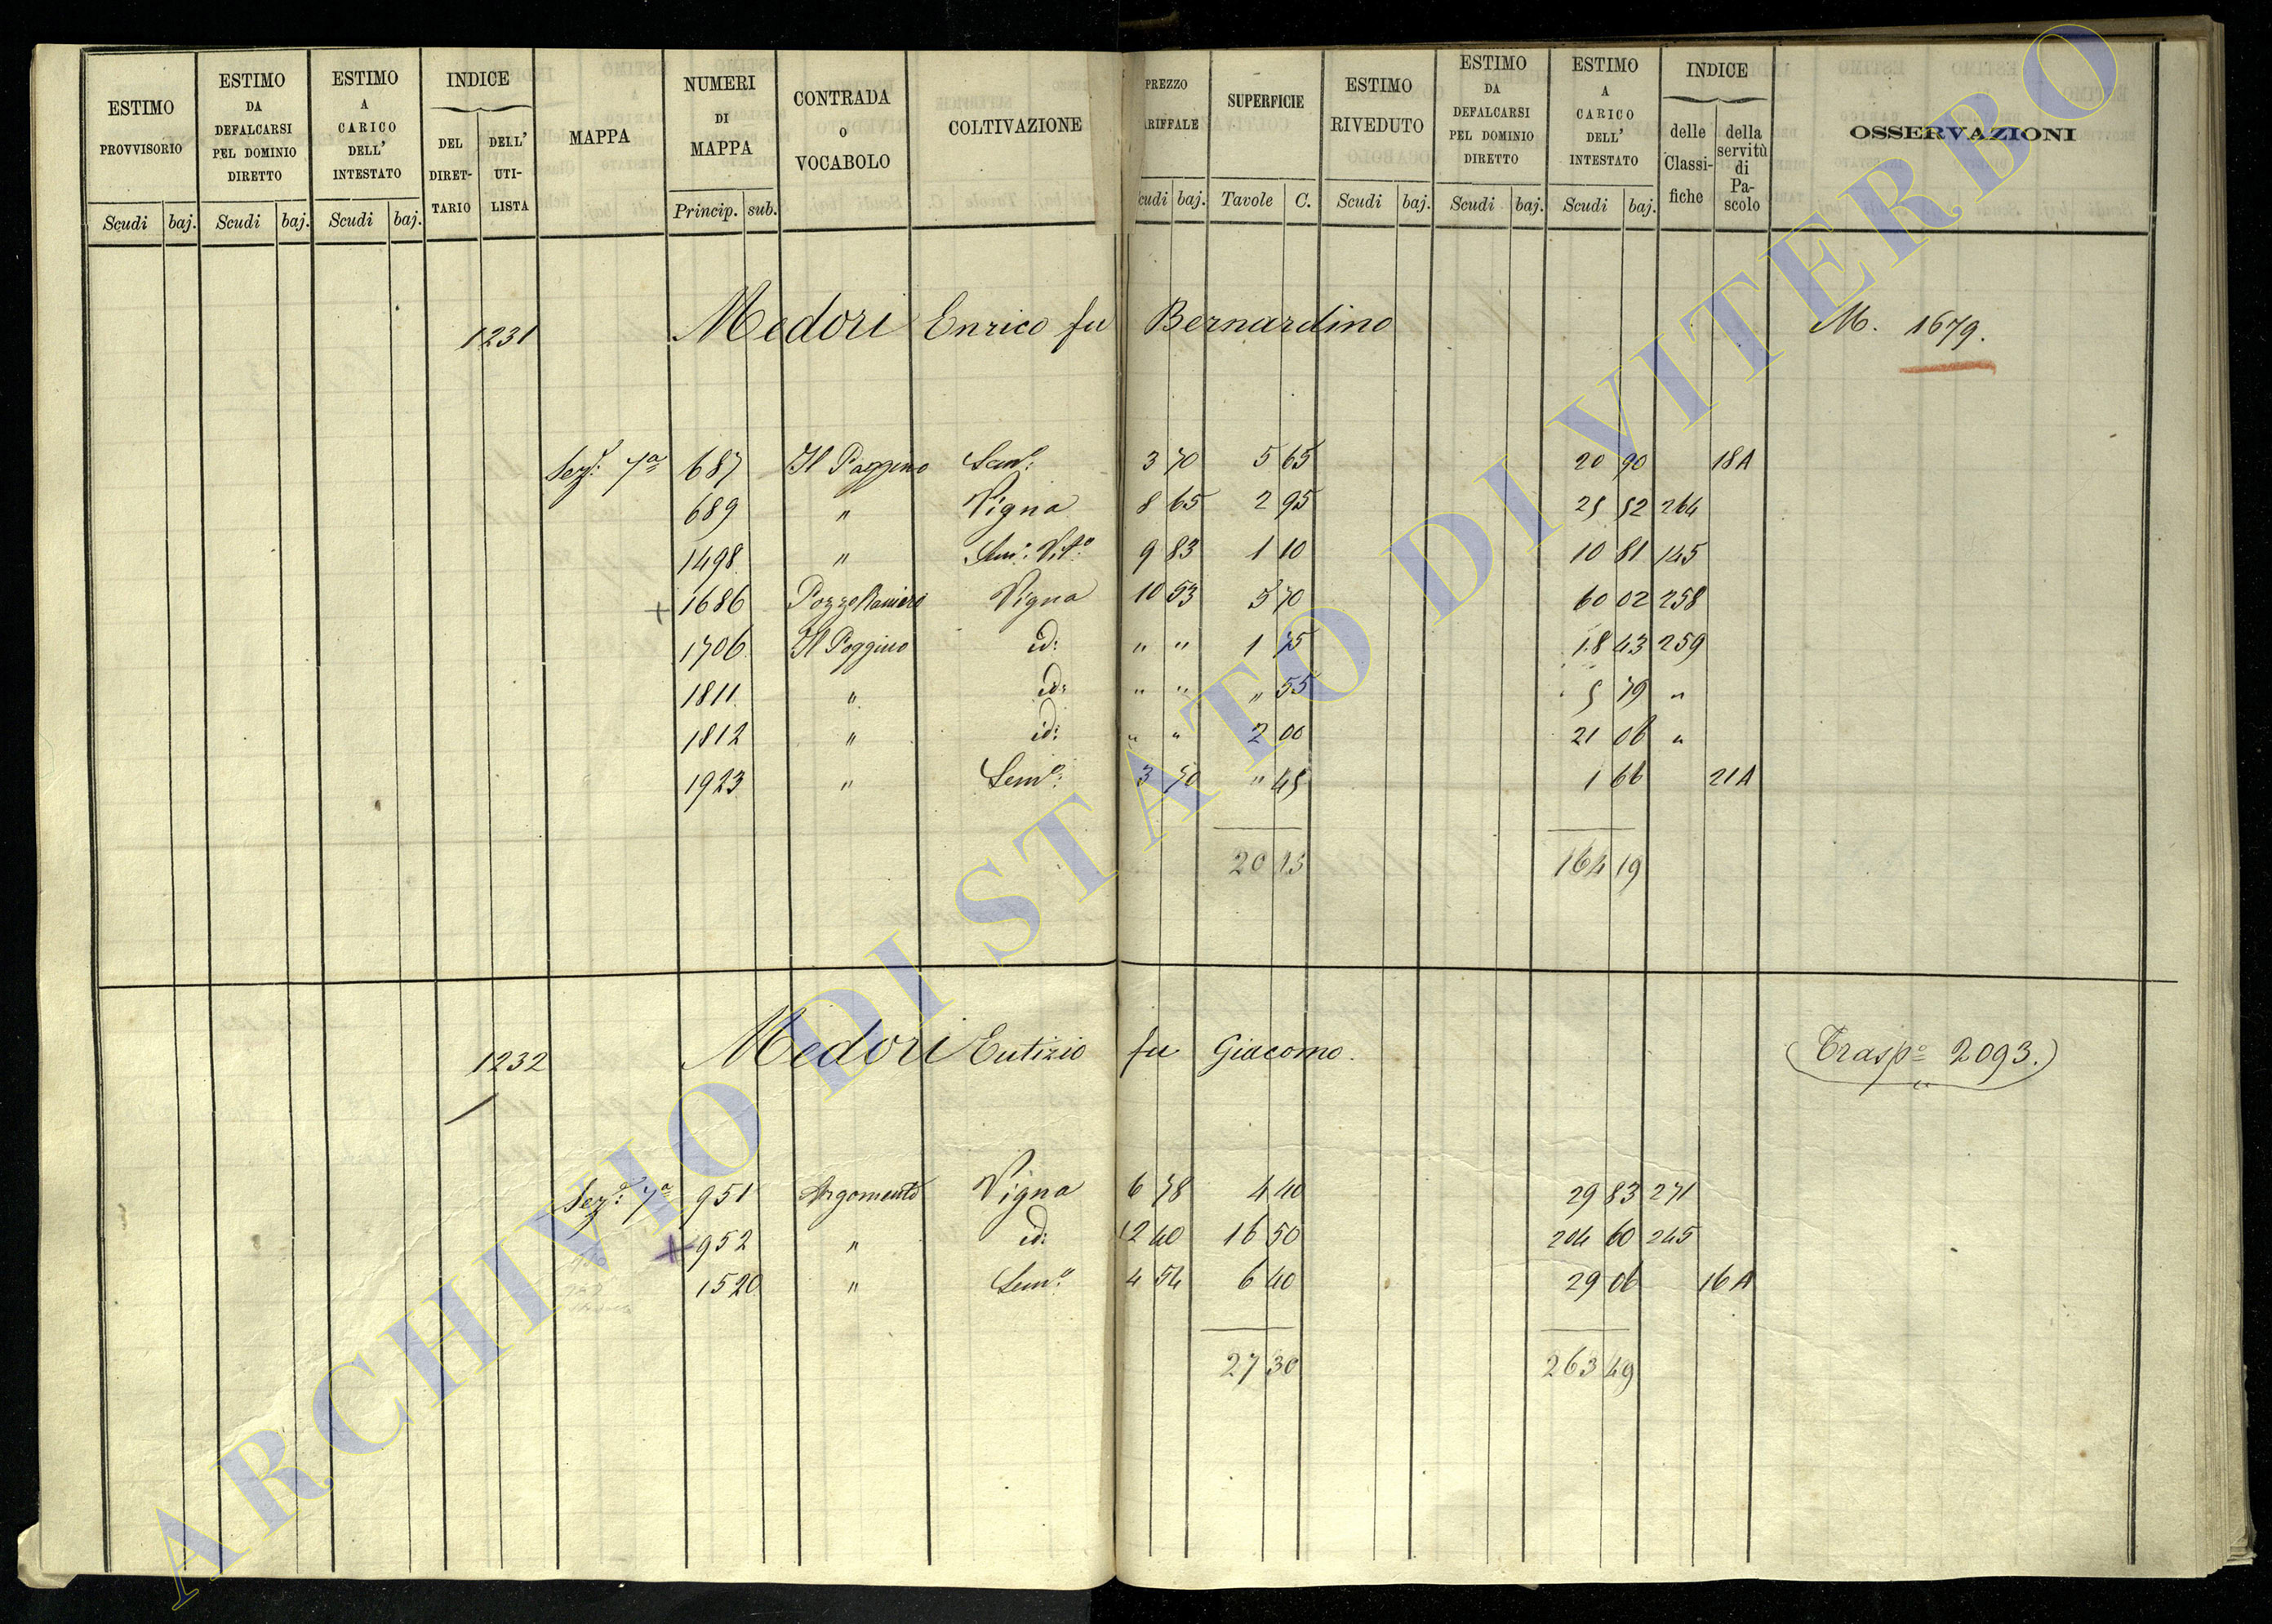 ESTIMO PROVVISORIO Scudi baj.
ESTIMO DA DEFALCARSI PEL DOMINIO DIRETTO Scudi baj.
ESTIMO A CARICO DELL' INTESTATO Scudi baj.
INDICE DEL DIRET- TARIO DELL' UTI- LISTA
MAPPA
NUMERI DI MAPPA Princip. sub.
CONTRADA O VOCABOLO
COLTIVAZIONE
PREZZO ARIFFALE cudi baj.
SUPERFICIE Tavole C.
ESTIMO RIVEDUTO Scudi baj.
ESTIMO DA DEFALCARSI PEL DOMINIO DIRETTO Scudi baj.
ESTIMO A CARICO DELL' INTESTATO Scudi baj.
INDICE delle Classi- fiche della servitù di Pa- scolo
OSSERVAZIONI
1231 Medori Enrico fu Bernardino M. 1679.
Sez: 7a 687 Il Poggino Sem: 3 70 5 65 20 90 18A
689 " Vigna 8 65 2 95 25 52 264
1498 " Sem: Vit.o 9 83 1 10 10 81 145
+ 1686 Vigna 10 53 5 70 60 02 258
1706 Il Poggino id: " " 1 75 18 43 259
1811 " id: " " " 55 5 79 "
1812 " id: " " 2 00 21 06 "
1923 " Sem: 3 70 " 45 1 66 21A
20 15 164 19
1232 Medori Eutizio fu Giacomo. (Trasp.o 2093.)
Sez: 7a 951 Argomento Vigna 6 78 4 40 29 83 271
+ 952 " id: 12 40 16 50 204 60 245
1520 " Sem.o 4 54 6 40 29 06 16A
27 30 263 49
ARCHIVIO DI STATO DI VITERBO